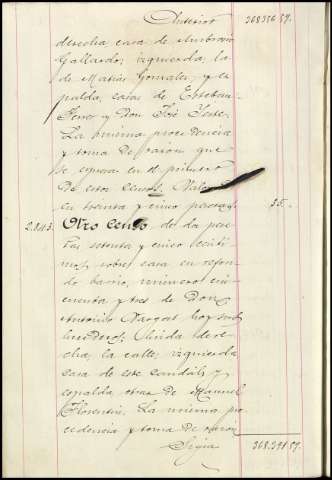 Anterior 368.356.59.
derecha casa de Ambrosio
Gallardo; izquierda, la
de Matías Gonzalez, y es
palda, casas de Esteban
Ferrer y Don José
La misma procedencia
y toma de razon que
se espresa en el primero
de estos censos. Valor
en treinta y cinco pesetas. 35.-
Otro censo de dos pese
tas setenta y cinco cénti
mos, sobre casa en
barrio, número cin
cuenta y tres de Don
Antonio hoy sus
herederos; linda dere
cha, la calle; izquierda
casa de este caudal; y
espalda otra de Manuel
Florentin. La misma pro
cedencia y toma de razon
Sigue 368.391.59.